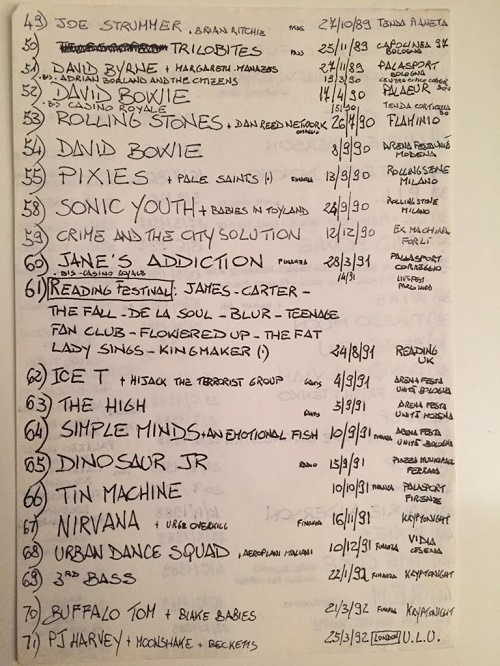 49) JOE STRUMMER, BRIAN RITCHIE FREE 27/10/89 TENDA PIANETA
50) TRILOBITES PASS 25/11/89 CAPOLINEA 37 BOLOGNA
51) DAVID BYRNE + MARGARETH MANAZES 27/11/89 PALASPORT BOLOGNA
.BIS. ADRIAN BORLAND AND THE CITIZENS 15/3/90
52) DAVID BOWIE 17/4/90 PALAEUR
.BIS CASINO ROYALE TENDA
53) ROLLING STONES + DAN REED NETWORK 26/7/90 FLAMINIO
54) DAVID BOWIE 8/9/90 ARENA FESTA UNITÀ MODENA
55) PIXIES + PALE SAINTS (.) FINANZA 13/9/90 ROLLING STONE MILANO
58) SONIC YOUTH + BABIES IN TOYLAND 24/9/90 ROLLING STONE MILANO
59) CRIME AND THE CITY SOLUTION 12/12/90 EX MACHINA FORLÌ
60) JANE'S ADDICTION FINANZA 28/3/91 PALASPORT CORREGGIO
.BIS-CASINO ROYALE
61) READING FESTIVAL: JAMES - CARTER -
THE FALL - DE LA SOUL - BLUR - TEENAGE
FAN CLUB - FLOWERED UP - THE FAT
LADY SINGS - KINGMAKER (.) 24/8/91 READING UK
62) ICE T + HIJACK THE TERRORIST GROUP GRATIS 4/9/91 ARENA FESTA UNITÀ BOLOGNA
63) THE HIGH GRATIS 5/9/91 ARENA FESTA UNITÀ MODENA
64) SIMPLE MINDS + AN EMOTIONAL FISH 10/9/91 FINANZA ARENA FESTA UNITÀ BOLOGNA
65) DINOSAUR JR RADIO 15/9/91 PIAZZA MUNICIPALE FERRARA
66) TIN MACHINE 10/10/91 FINANZA PALASPORT FIRENZE
67) NIRVANA + URGE OVERKILL FINANZA 16/11/91 KRYPTONIGHT
68) URBAN DANCE SQUAD, AEROPLANI ITALIANI 10/12/91 FINANZA VIDIA CESENA
69) 3RD BASS 22/1/92 FINANZA KRYPTONIGHT
70) BUFFALO TOM + BLAKE BABIES 21/3/92 FINANZA KRYPTONIGHT
71) PJ HARVEY + MOONSHAKE + BECKETTS 25/3/92 LONDON U.L.U.